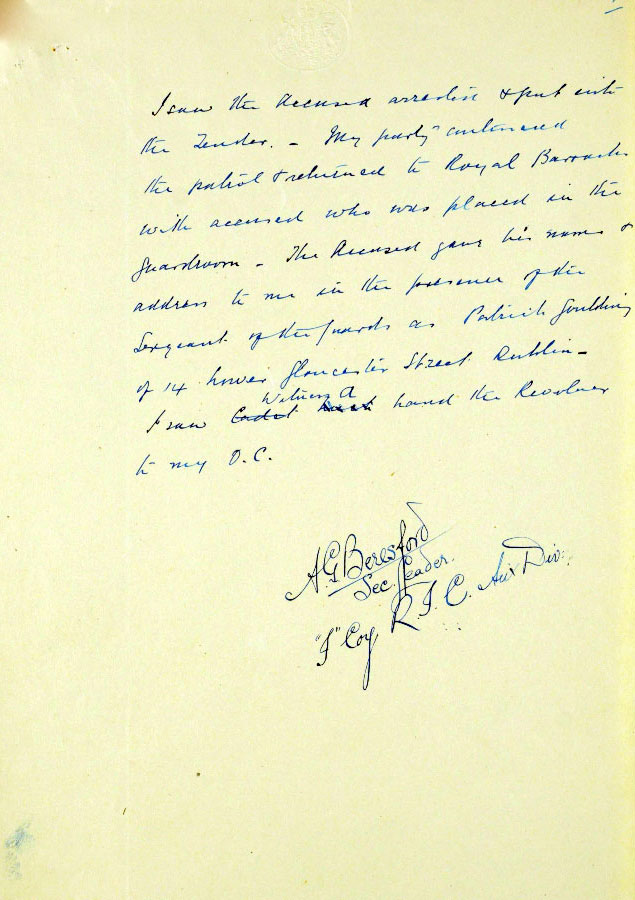 I saw the Accused arrested & put into
the Tender. – My party continued
the patrol & returned to Royal Barracks
with accused who was placed in the
guardroom – The Accused gave his name &
address to me in the presence of the
Sergeant of the guards as Patrick Goulding
of 14 Lower Gloucester Street Dublin –
Witness A
I saw Cadet hand the Revolver
to my O.C.
A.G. Beresford
Sec. Leader.
"F" Coy R.I.C. Aux Div: